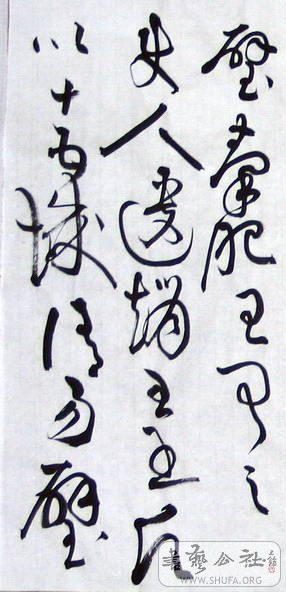 璧秦昭王聞之
使人遺趙王書願
以十五城請易璧
書藝公社
WWW.SHUFA.ORG